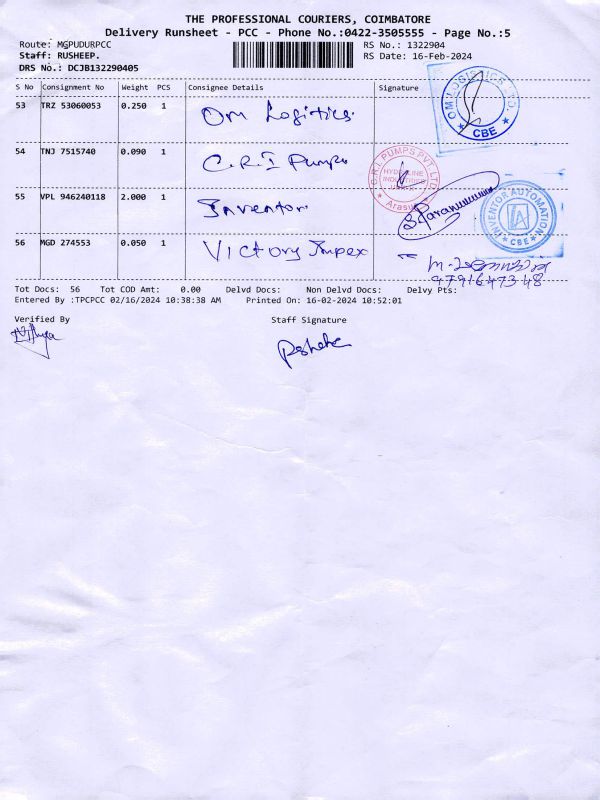 THE PROFESSIONAL COURIERS, COIMBATORE
Delivery Runsheet - PCC - Phone No.:0422-3505555 - Page No.:5
Route: MGPUDURPCC RS No.: 1322904
Staff: RUSHEEP. RS Date: 16-Feb-2024
DRS No.: DCJB132290405
S No Consignment No Weight PCS Consignee Details Signature
53 TRZ 53060053 0.250 1 Om Logistics. OM LOGISTICS LTD. CBE
54 TNJ 7515740 0.090 1 C.R.I Pumps C.R.I. PUMPS PVT. LTD INDUSTRIES Arasur
55 VPL 946240118 2.000 1 Inventor. INVENTOR AUTOMATION IA CBE
56 MGD 274553 0.050 1 Victory Impex
9791647348
Tot Docs: 56 Tot COD Amt: 0.00 Delvd Docs: Non Delvd Docs: Delvy Pts:
Entered By :TPCPCC 02/16/2024 10:38:38 AM Printed On: 16-02-2024 10:52:01
Verified By Staff Signature